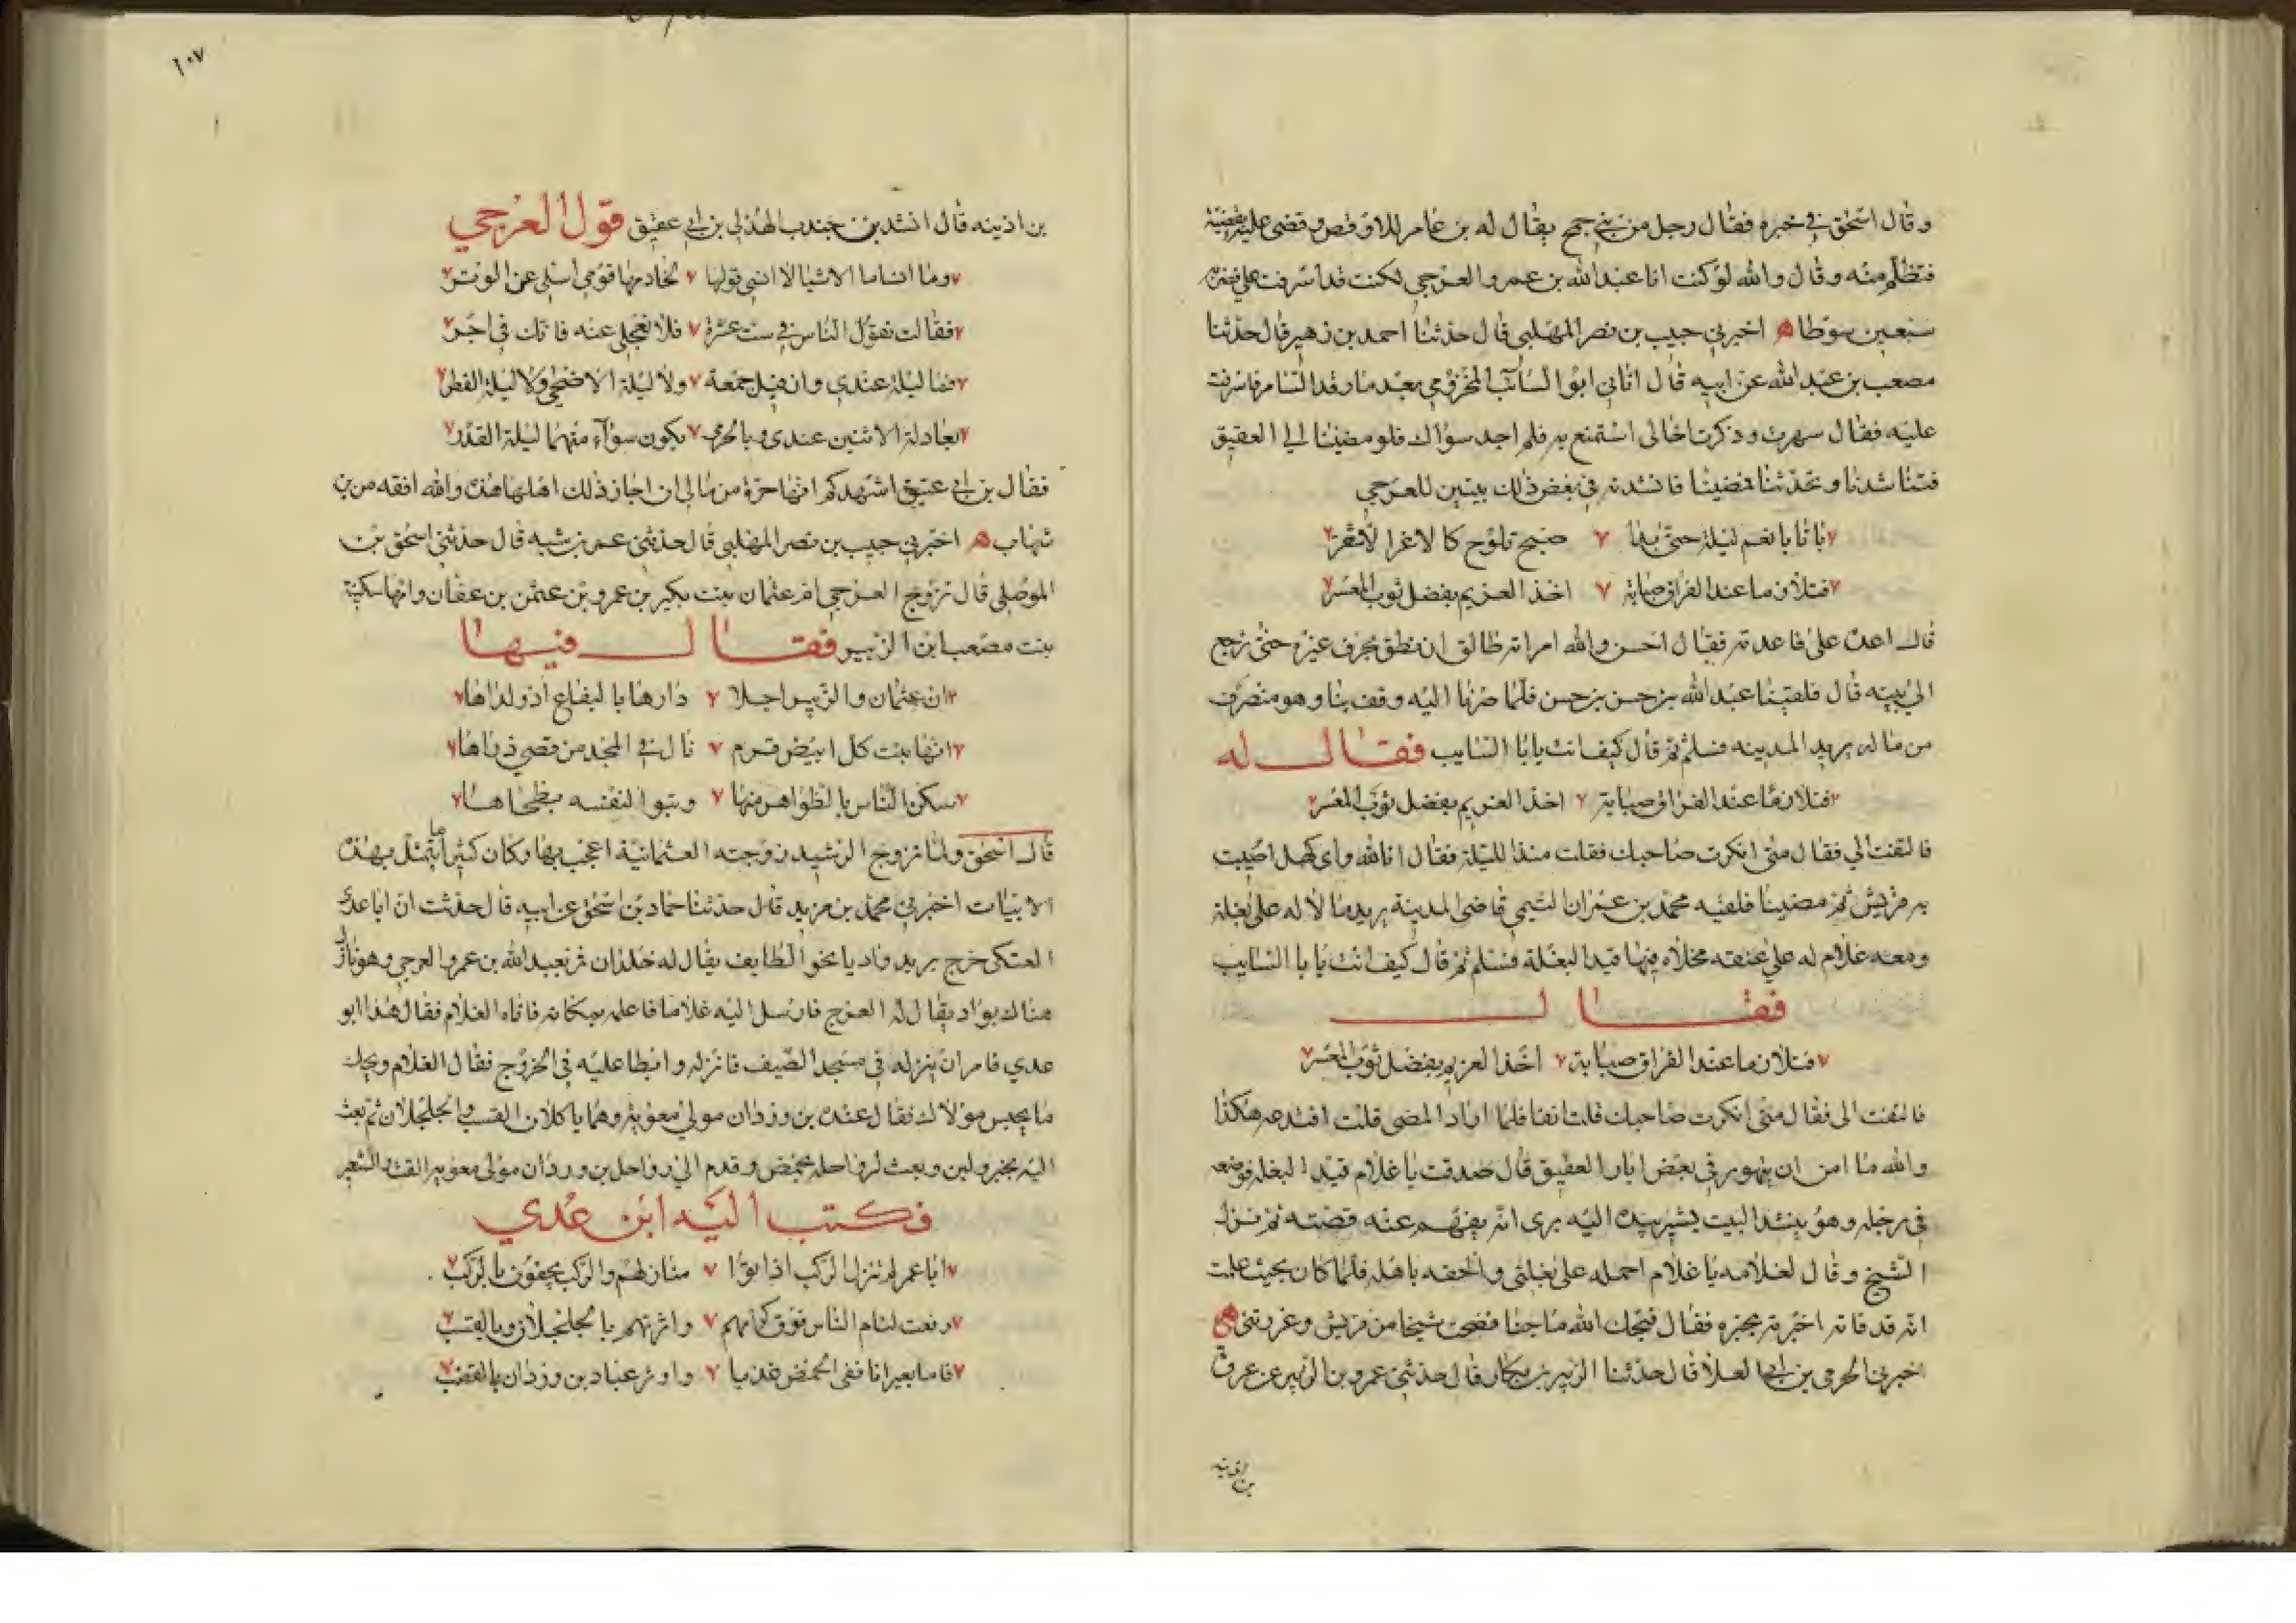 وقال اسحق في خبره فقال رجل من بني جمح يقال له بن عامر للاوقص وقضى عليه بقضية
فتظلم منه وقال والله لو كنت انا عبد الله بن عمرو العرجي لكنت قد اسرفت علي فضربه
سبعين سوطا ه اخبرني حبيب بن نصر المهلبي قال حدثنا احمد بن زهير قال حدثنا
مصعب بن عبد الله عن ابيه قال اتاني ابو السائب المخزومي بعد ما رقد السامر فاشرفت
عليه فقال سهرت وذكرت اخا لي استمتع به فلم اجد سواك فلو مضينا الى العقيق
فتناشدنا وتحدثنا فمضينا فانشدته في بعض ذلك بيتين للعرجي
باتا بانعم ليلة حتى بدا صبح تلوح كالاغر الاشقر
فتلازما عند الفراق صبابة اخذ الغريم بفضل ثوب المعسر
قال اعد علي فاعدته فقال احسن والله امراته طالق ان نطق بحرف غيره حتى ترجع
الى بيته قال فلقينا عبد الله بن حسن بن حسن فلما صرنا اليه وقف بنا وهو منصرف
من ماله يريد المدينه فسلم ثم قال كيف انت يابا السايب فقال له
فتلازما عند الفراق صبابة اخذ الغريم بفضل ثوب المعسر
فالتفت الي فقال متى انكرت صاحبك فقلت منذ الليلة فقال انا لله واي كهل اصيبت
به قريش ثم مضينا فلقيه محمد بن عمران التيمي قاضى المدينة يريد مالا له على بغلة
ومعه غلام له على عنقه مخلاه فيها قيد البغلة فسلم ثم قال كيف انت يا با السايب
فقال
فتلازما عند الفراق صبابة اخذ الغريم بفضل ثوب المعسر
فالتفت الى فقال متى انكرت صاحبك قلت انفا فلما اراد المضى قلت افتدعه هكذا
والله ما امن ان يتهور في بعض ابار العقيق قال صدقت يا غلام قيد البغلة فوضعه
في رجله وهو ينشد البيت يشير بيده اليه يرى انه يفهم عنه قصته ثم نزل
الشيخ وقال لغلامه يا غلام احمله على بغلتي والحقه باهله فلما كان بحيث علمت
انه قد فاته اخبرته بخبره فقال قبحك الله ماجنا فضحت شيخا من قريش وغررتني ه
اخبرني الحرمي بن ابي العلا قال حدثنا الزبير بن بكار قال حدثني عمرو بن الزبير عن عروة
بن اذينه
١٠٧
بن اذينه قال انشد بن جندب الهذلي بن ابي عقيق قول العرجي
وما انسا ما الاشيا لا انسى قولها لخادمها قومي اسئلي عن الوتر
فقالت تقول الناس في ست عشرة فلا تعجلي عنه فانك في اجر
فما ليلة عندي وان قيل جمعة ولا ليلة الاضحى ولا ليلة الفطر
بعادلة الاثنين عندي وبالحرى يكون سوآء منهما ليلة القدر
فقال بن ابي عتيق اشهدكم انها حرة من مالي ان اجاز ذلك اهلها هذه والله افقه من بن
شهاب ه اخبرني حبيب بن نصر المهلبي قال حدثني عمر بن شبه قال حدثني اسحق بن
الموصلي قال تزوج العرجي ام عثمان بنت بكير بن عمرو بن عثمن بن عفان وامها سكينة
بنت مصعب ابن الزبير فقال فيها
ان عثمان والزبير احلا دارها باليفاع اذ ولداها
انها بنت كل ابيض قرم نال في المجد من قصي ذراها
سكن الناس بالظواهر منها وتبوا لنفسه بطحاها
قال اسحق ولما تزوج الرشيد زوجته العثمانية اعجب بها وكان كثيرا ما يتمثل بهذه
الابيات اخبرني محمد بن مزيد قال حدثنا حماد بن اسحق عن ابيه قال حدثت ان ابا عدي
العتكى خرج يريد واديا نحو الطايف يقال له جلذان فمر بعبد الله بن عمرو العرجي وهو نازل
هناك بواد يقال له العرج فارسل اليه غلاما فاعلمه بمكانه فاتاه الغلام فقال هذا ابو
عدي فامر ان ينزله في مسجد الضيف فانزله وابطا عليه في الخروج فقال الغلام ويحك
ما يحبس مولاك فقال عنده بن وردان مولى معويه وهما ياكلان القسب والجلجلان ثم بعث
اليه بخبز ولبن وبعث لرواحله بحمض وقدم الى رواحل بن وردان مولى معويه القت والشعير
فكتب اليه ابن عدي
ابا عمر لم تنزل الركب اذ اتوا منازلهم والركب يحفون بالركب
رفعت لئام الناس فوق كرامهم واثرتهم بالجلجلان وبالقسب
فاما بعيرانا ففي الحمض غديا واوثر عباد بن وردان بالقضب